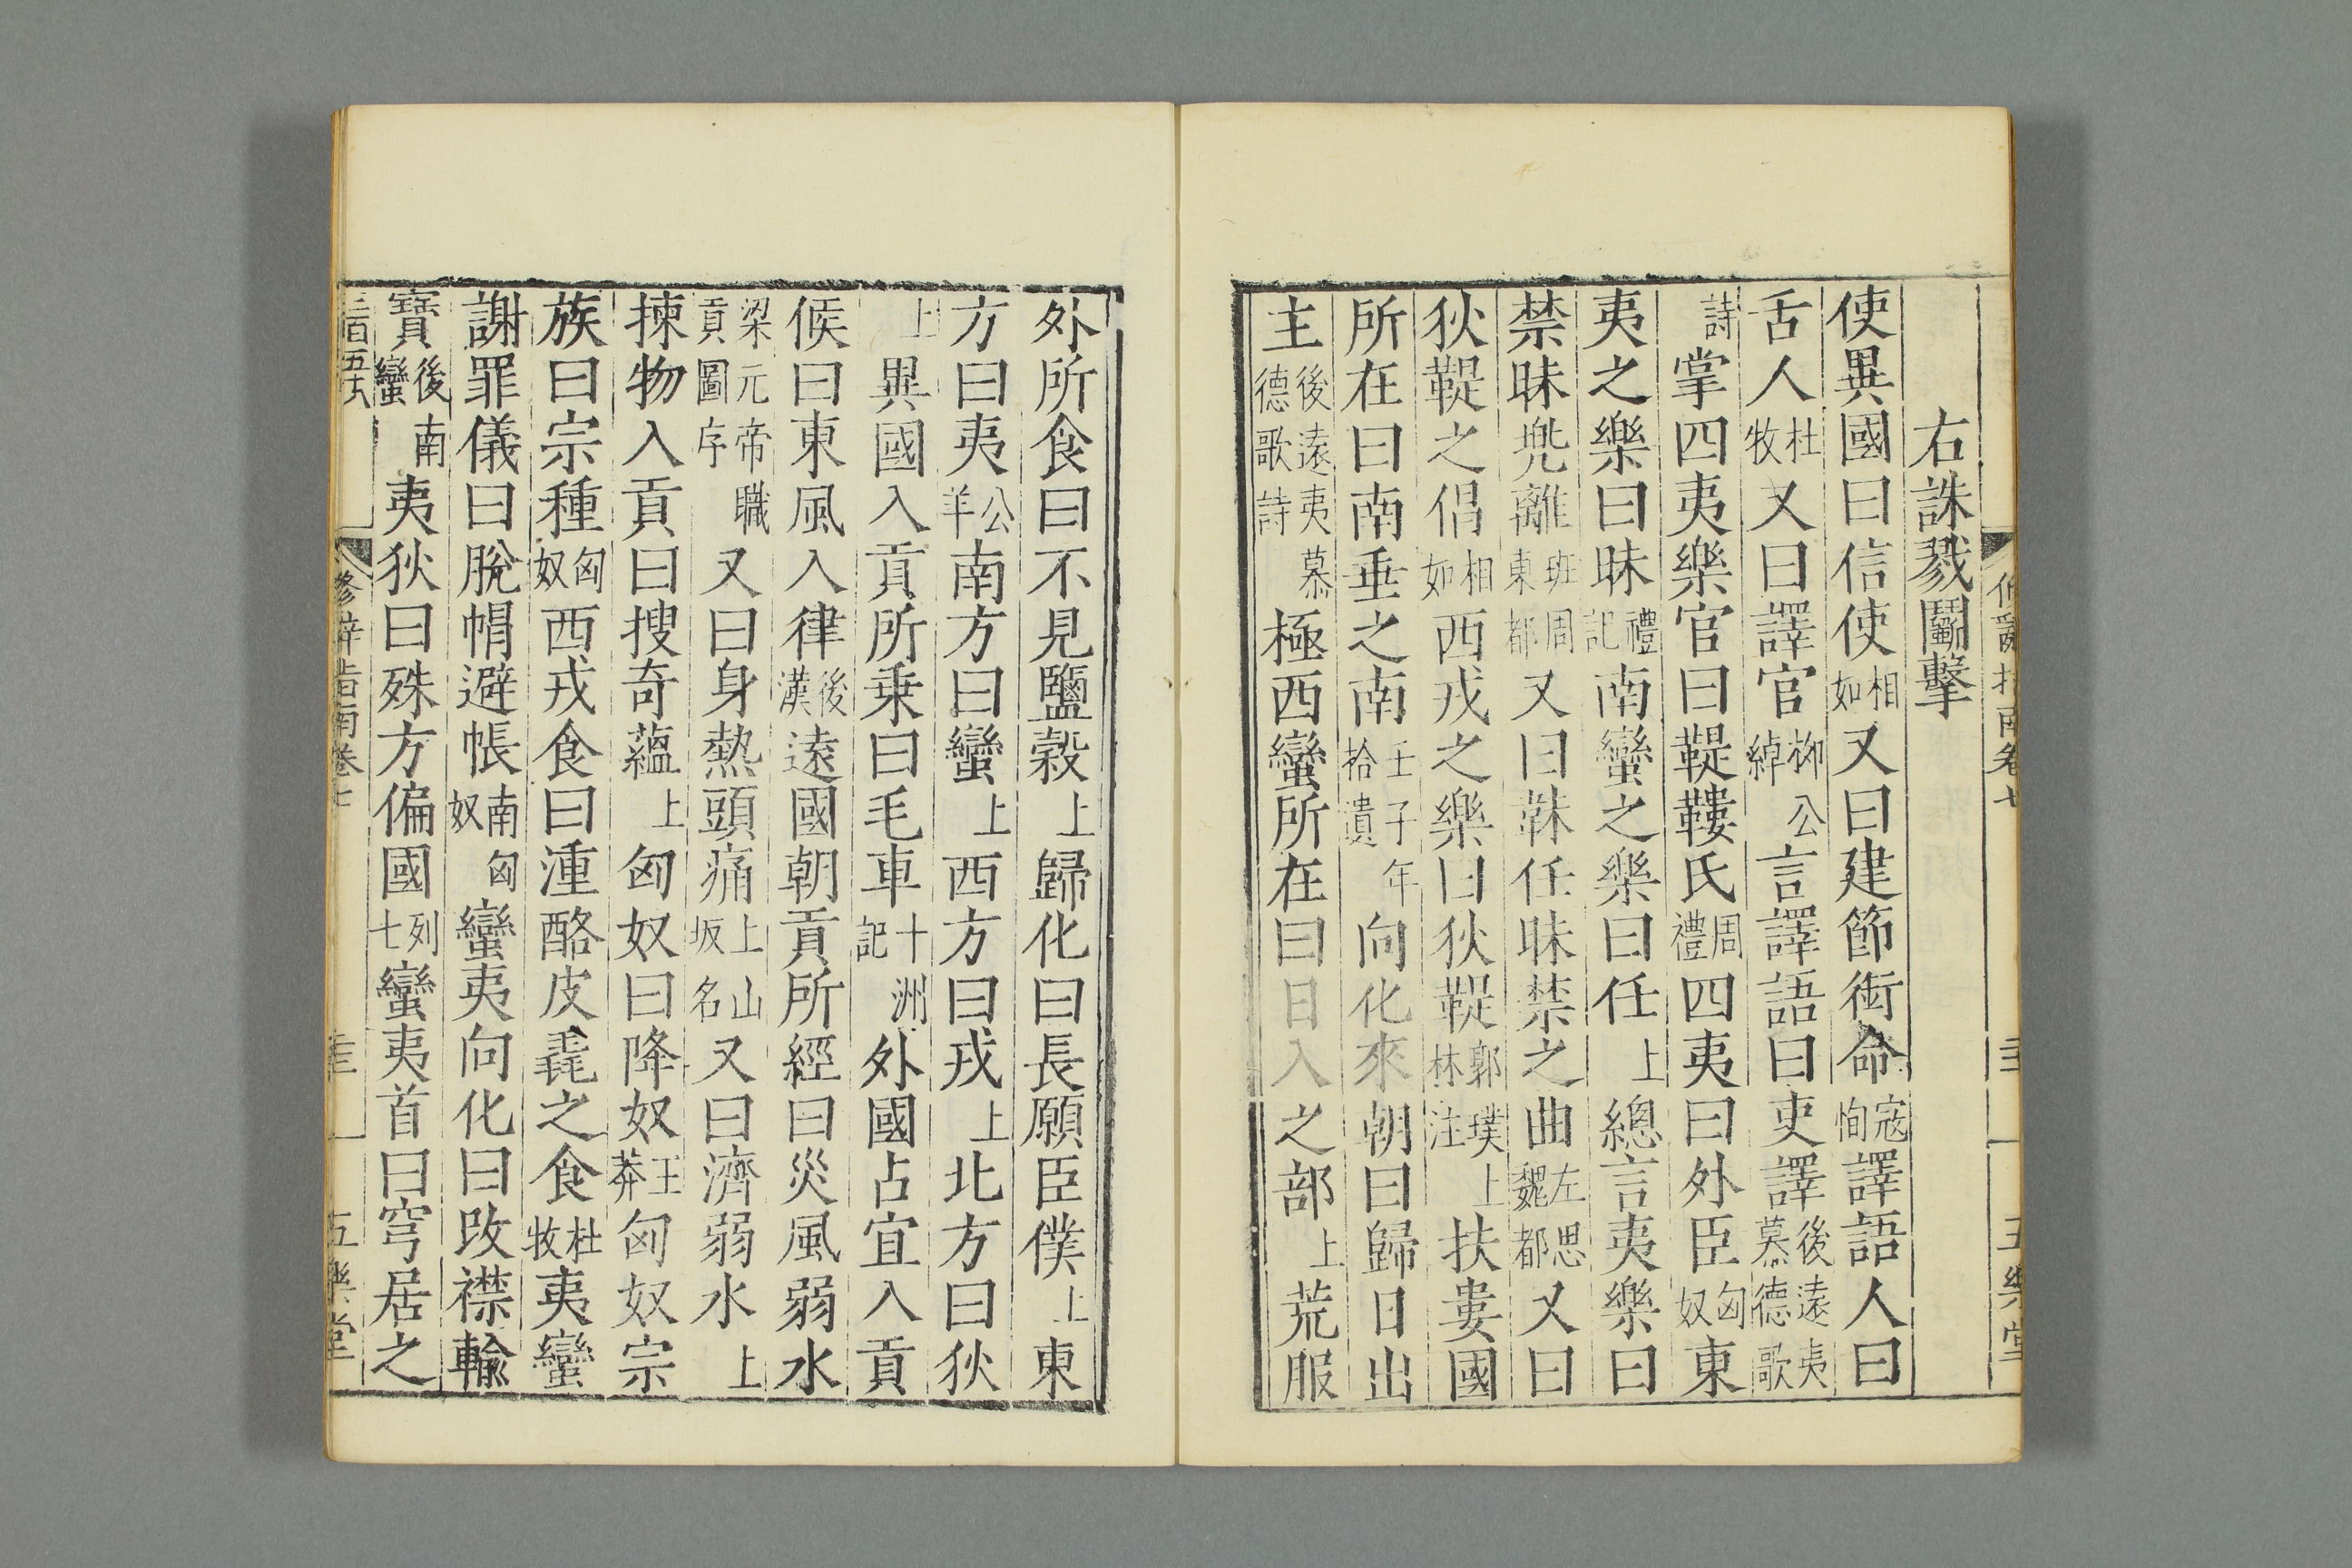 右誅戮鬭擊
使異國曰信使相如又曰建節銜命寇恂譯語人曰
舌人杜牧又曰譯官柳公綽言譯語曰吏譯後遠夷慕德歌
詩掌四夷樂官曰鞮鞻氏周禮四夷曰外臣匈奴東
夷之樂曰昧禮記南蠻之樂曰任上總言夷樂曰
禁昧兠離班周東都又曰韎任昧禁之曲左思魏都又曰
狄鞮之倡相如西戎之樂曰狄鞮郭璞上林注扶婁國
所在曰南垂之南王子年拾遺向化來朝曰歸日出
主後遠夷慕德歌詩極西蠻所在曰日入之部上荒服
外所食曰不見鹽穀上歸化曰長願臣僕上東
方曰夷公羊南方曰蠻上西方曰戎上北方曰狄
上異國入貢所乗曰毛車十洲記外國占宜入貢
候曰東風入律後漢遠國朝貢所經曰災風弱水
梁元帝職貢圖序又曰身熱頭痛上山坂名又曰濟弱水上
揀物入貢曰搜奇蘊上匈奴曰降奴王莽匈奴宗
族曰宗種匈奴西戎食曰湩酪皮毳之食杜牧夷蠻
謝罪儀曰脫帽避帳南匈奴蠻夷向化曰改襟輸
寶後南蠻夷狄曰殊方偏國列七蠻夷首曰穹居之
脩辭指南卷七
五樂堂